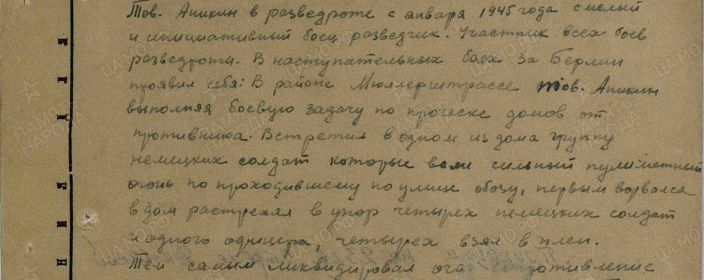 Тов. Аникин в разведроте с января 1945 года смелый
и инициативный боец разведчик. Участник всех боев
разведроты. В наступательных боях за Берлин
проявил себя: В районе Мюллерштрассе тов. Аникин
выполняя боевую задачу по прочёске домов от
противника. Встретив в одном из дома группу
немецких солдат которые вели сильный пулиметный
огонь по проходившему по улице обозу, первым ворвался
в дом растрелял в упор четырех немецких солдат
и одного офицера, четырех взял в плен.
Тем самим ликвидировал очаг сопротивление